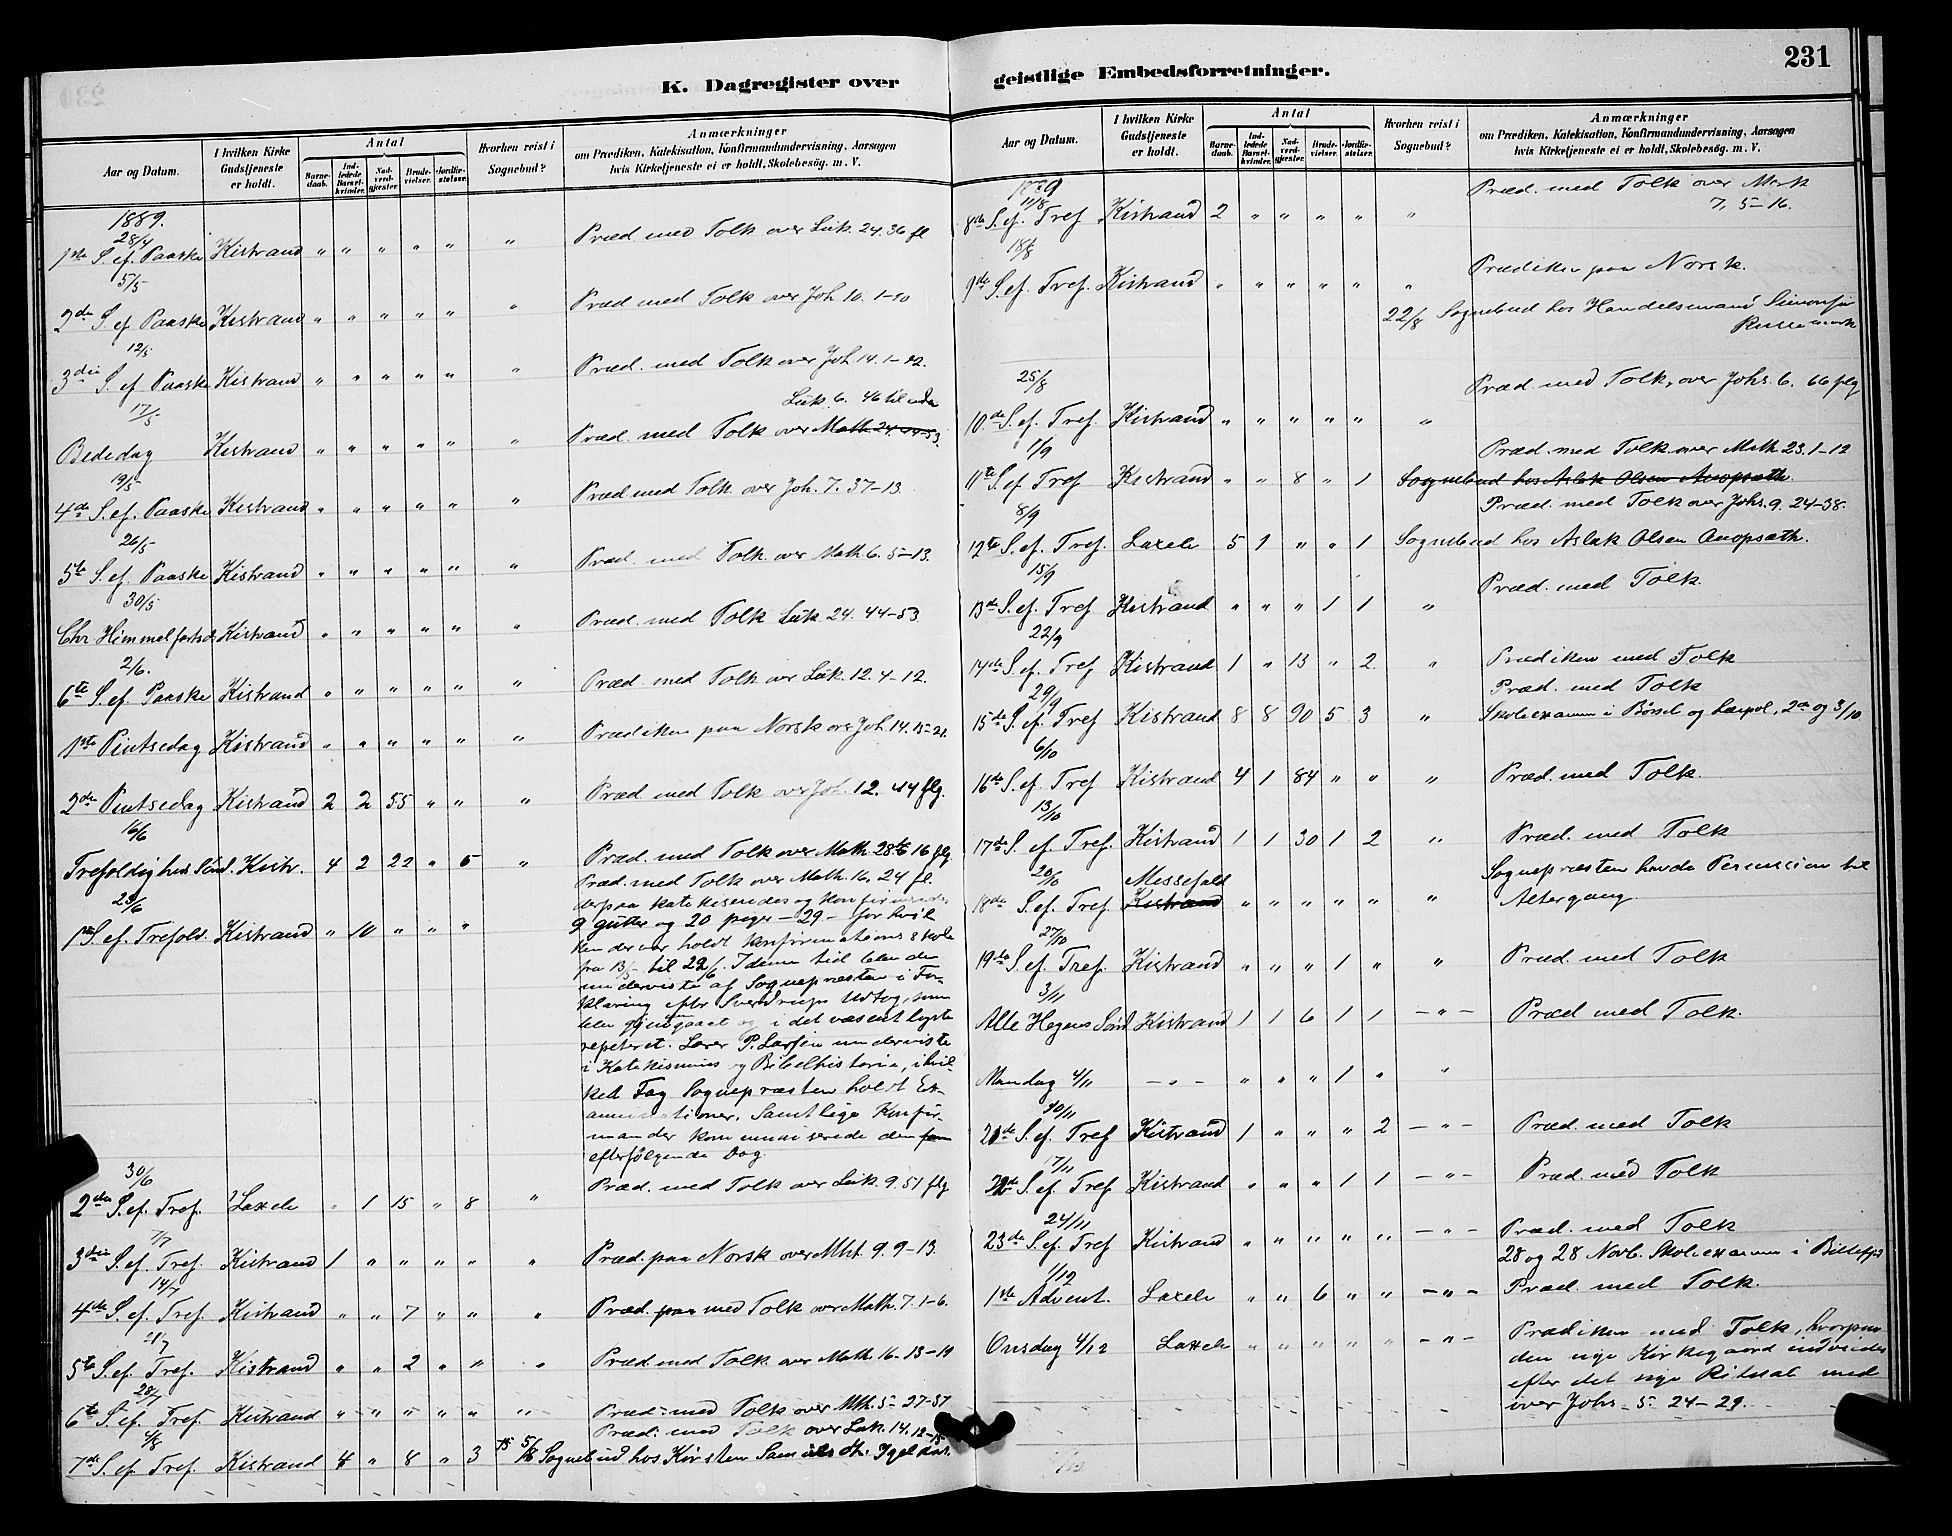 K. Dagregister over
Aar og Datum.
I hvilken Kirke Gudstjeneste er holdt.
Antal
Barnedaab.
Indledede Barselkvinder.
Nadverdgjester.
Brudevielser.
Jordfæstelser.
Hvorhen reist i Sognebud?
Anmærkninger
om Prædiken, Katekisation, Konfirmandundervisning, Aarsagen
hvis Kirketjeneste ei er holdt, Skolebesög. m. V.
1889.
28/4
1ste S. ef. Paaske Kistrand " " " " " " Præd. med Tolk over Luk. 24. 36 fl
5/5
2den S. ef. Paaske Kistrand " " " " " " Præd med Tolk over Joh. 10. 1-10
12/5
3die S. ef. Paaske Kistrand " " " " " " Præd. med Tolk over Joh. 14. 1-12.
17/5
Luk. 6. 46 til enden
Bededag Kistrand " " " " " " Præd. med Tolk over Math. 24. 53.
19/5
4de S. ef. Paaske Kistrand " " " " " " Præd med Tolk over Joh. 7. 37-13
26/5
5te S. ef. Paaske Kistrand " " " " " " Præd. med Tolk over Math 6. 5-13.
30/5
Chr Himmelfartsd Kistrand " " " " " " Præd. med Tolk Luk. 24. 44-53.
2/6.
6te S. ef. Paaske Kistrand " " " " " " Præd. med Tolk over Luk. 12. 4-12.
1ste Pintsedag Kistrand " " " " " " Prædiken paa Norsk over Joh. 14. 15-21.
2den Pintsedag Kistrand 2 2 55 " " " Præd med Tolk over Joh. 12. 44 flg.
16/6
Trefoldighed Sönd. Kistr. 4 2 22 " 5 " Præd. med Tolk over Math. 28 16 flg.
23/6
Præd. med Tolk over Math. 16. 24 fl.
derpaa katekiseredes og konfirmeredes
1ste S. ef. Trefold. Kistrand " 10 " " " 9 gutter og 20 piger - 29 - for hvil
ken der var holdt Konfirmations skole
fra 13/5 til 22/6. I denne tid blev den
underviste af Sognepræsten i For-
klaring efter Sverdrups Udtog, som
blev gjengaaet og i det væsentligste
repeteret. Lærer P. Larsen underviste
i Katekismus og Bibelhistorie, i hvil-
ket Fag Sognepræsten holdt Ex-
aminationer. Samtlige Konfir-
mander kommuniserede den
efterfølgende Dag
30/6
2den S. ef. Tref. Laxelv " 1 15 " 8 " Præd. med Tolk over Luk. 9. 51 flg
7/7
3die S. ef. Tref. Kistrand 1 " " " " " Præd. paa Norsk over Mht. 9. 9-13.
14/7
4de S. ef. Tref. Kistrand " " 7 " " " Præd. paa med Tolk over Math. 7. 1-6.
21/7
5te S. ef. Tref. Kistrand " " 2 " " " Præd. med Tolk over Math 16. 13-19
28/7
6te S. ef. Tref. Kistrand " " " " " " Præd. med Tolk over Mth. 5. 27-37
4/8
Præd. med Tolk over Luk. 14. 12-15
7de S. ef. Tref. Kistrand 4 " 8 " 3 5/8 Sognebud hos Kirsten Samuelsdt. Igeldas.
geistlige Embedsforretninger.
231
Aar og Datum.
I hvilken Kirke Gudstjeneste er holdt.
Antal
Barnedaab.
Indledede Barselkvinder.
Nadverdgjester.
Brudevielser.
Jordfæstelser.
Hvorhen reist i Sognebud?
Anmærkninger
om Prædiken, Katekisation, Konfirmandundervisning, Aarsagen
hvis Kirketjeneste ei er holdt, Skolebesög. m. V.
1889
11/8
Præd. med Tolk over Mark
8de S. ef. Tref Kistrand 2 " " " " " 7. 5-16.
18/8
9de S. ef. Tref. Kistrand " " " " " " Prædiken paa Norsk.
22/8 Sognebud hos Handelsmand Simonsen
25/8
10de S. ef. Tref. Kistrand " " " " " " Præd. med Tolk, over Johs. 6. 66 flg
1/9
Præd. med Tolk over Math 23. 1-12
11te S. ef Tref Kistrand " " 8 " 1 Sognebud hos Aslak Olsen Avopsath.
8/9
Præd. med Tolk over Johs. 9. 24-38.
12te S. ef. Tref. Laxelv 5 1 " " 1 Sognebud hos Aslak Olsen Avopsath.
15/9
13de S. ef. Tref Kistrand " " " 1 1 " Præd. med Tolk.
22/9
14de S. ef. Tref Kistrand 1 " 13 " 2 " Prædiken med Tolk
29/9
Præd. med Tolk
15de S. ef. Tref Kistrand 8 8 90 5 3 " Skoleexamen i Börsel og Lærpol, 2den og 3/10
6/10
16de S. ef. Tref Kistrand 4 1 84 " " " Præd. med Tolk.
13/10
17de S. ef. Tref. Kistrand 1 1 30 1 2 " Præd. med Tolk
20/10
Messefald
Sognepræsten havde Permission til
18de S. ef. Tref. Kistrand " " " " " " Altergang.
27/10
19de S. ef. Tref. Kistrand " " " 1 " " Præd. med Tolk
3/11
Alle Helgens Sönd Kistrand 1 1 6 1 1 - " - Præd med Tolk.
Mandag 4/11 - " - " " " 1 " "
10/11
21de S. ef. Tref Kistrand 1 " " " 2 - " - Præd. med Tolk
17/11
22de S. ef. Tref Kistrand " " " 1 1 - " - Præd. med Tolk
24/11
23de S. ef. Tref Kistrand " " " " " - " - Præd. med Tolk
28 og 28 Novb. Skoleexamen i Billefj.
1/12
1ste Advent. Laxelv " " 6 " " - " - Præd. med Tolk.
Onsdag 4/12 Laxelv " " " " " - " - Prædiken med Tolk, hvorpaa
den nye Kirkegaard indviedes
efter det nye Ritual med
over Johs. 5. 24-29.